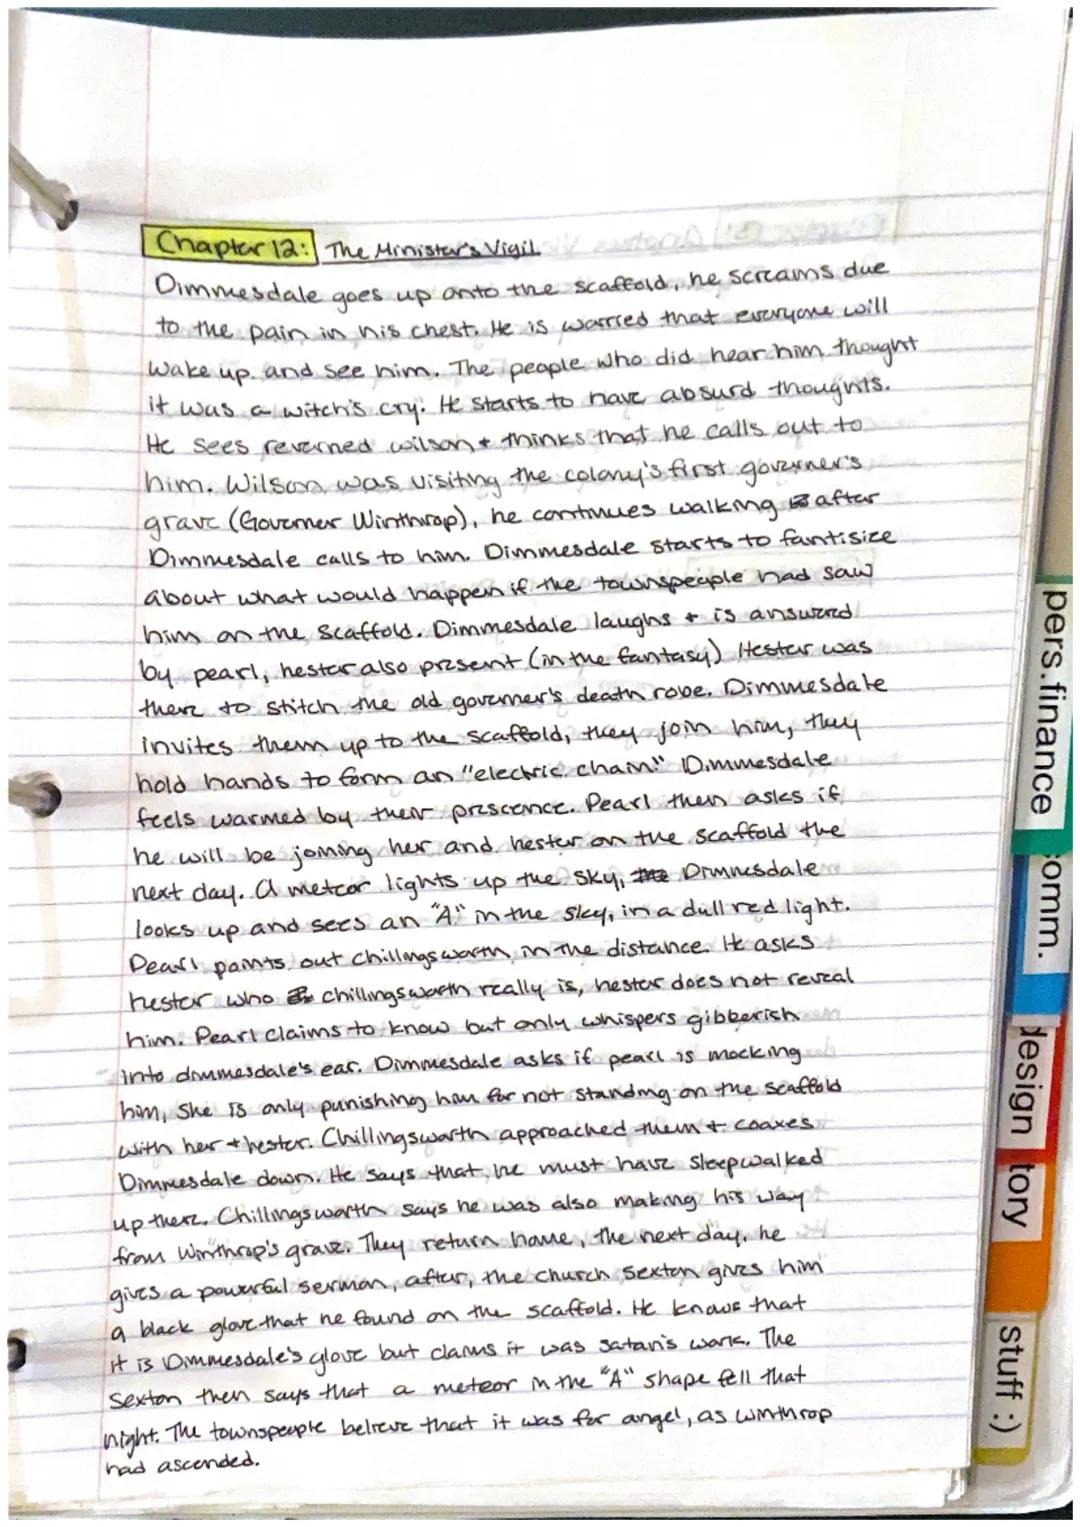 Chapter 12: The Minister's Vigil
Dimmesdale goes up onto the scaffold, he screams due
to the pain in his chest. He is worried that everyone will
wake up and see him. The people who did hear him thought
it was a witch's cry. He starts to have absurd thoughts.
He sees reverned wilson + thinks that he calls out to
him. Wilson was visiting the colony's first governer's
grave (Governer Winthrop), he continues walking after
Dimmesdale calls to him. Dimmesdale starts to fantisize
about what would happen if the townspeople had saw
him on the scaffold. Dimmesdale laughs + is answered
by pearl, hester also present (in the fantasy) Hester was
there to stitch the old governer's death robe. Dimmesdale
invites them up to the scaffold, they join him, they
hold hands to form an "electric chain." Dimmesdale
feels warmed by their prescence. Pearl then asks if
he will be joining her and hester on the scaffold the
next day. A meteor lights up the sky, Dimmesdale
looks up and sees an "A" in the sky, in a dull red light.
Pearl points out chillingsworth in the distance. He asks
hester who chillingsworth really is, hester does not reveal
him. Pearl claims to know but only whispers gibberish
into dimmesdale's ear. Dimmesdale asks if pearl is mocking
him, She is only punishing him for not standing on the scaffold
with her + hester. Chillingsworth approached them + coaxes
Dimmesdale down. He says that he must have sleepwalked
up there. Chillingsworth says he was also making his way
from Winthrop's grave. They return home, the next day, he
gives a powerful sermon, after, the church sexton gives him
a black glove that he found on the scaffold. He knows that
it is Dimmesdale's glove but claims it was satan's work. The
sexton then says that a meteor in the "A" shape fell that
night. The townspeople believe that it was for angel, as winthrop
had ascended.
pers.finance
omm.
design
tory
stuff :)